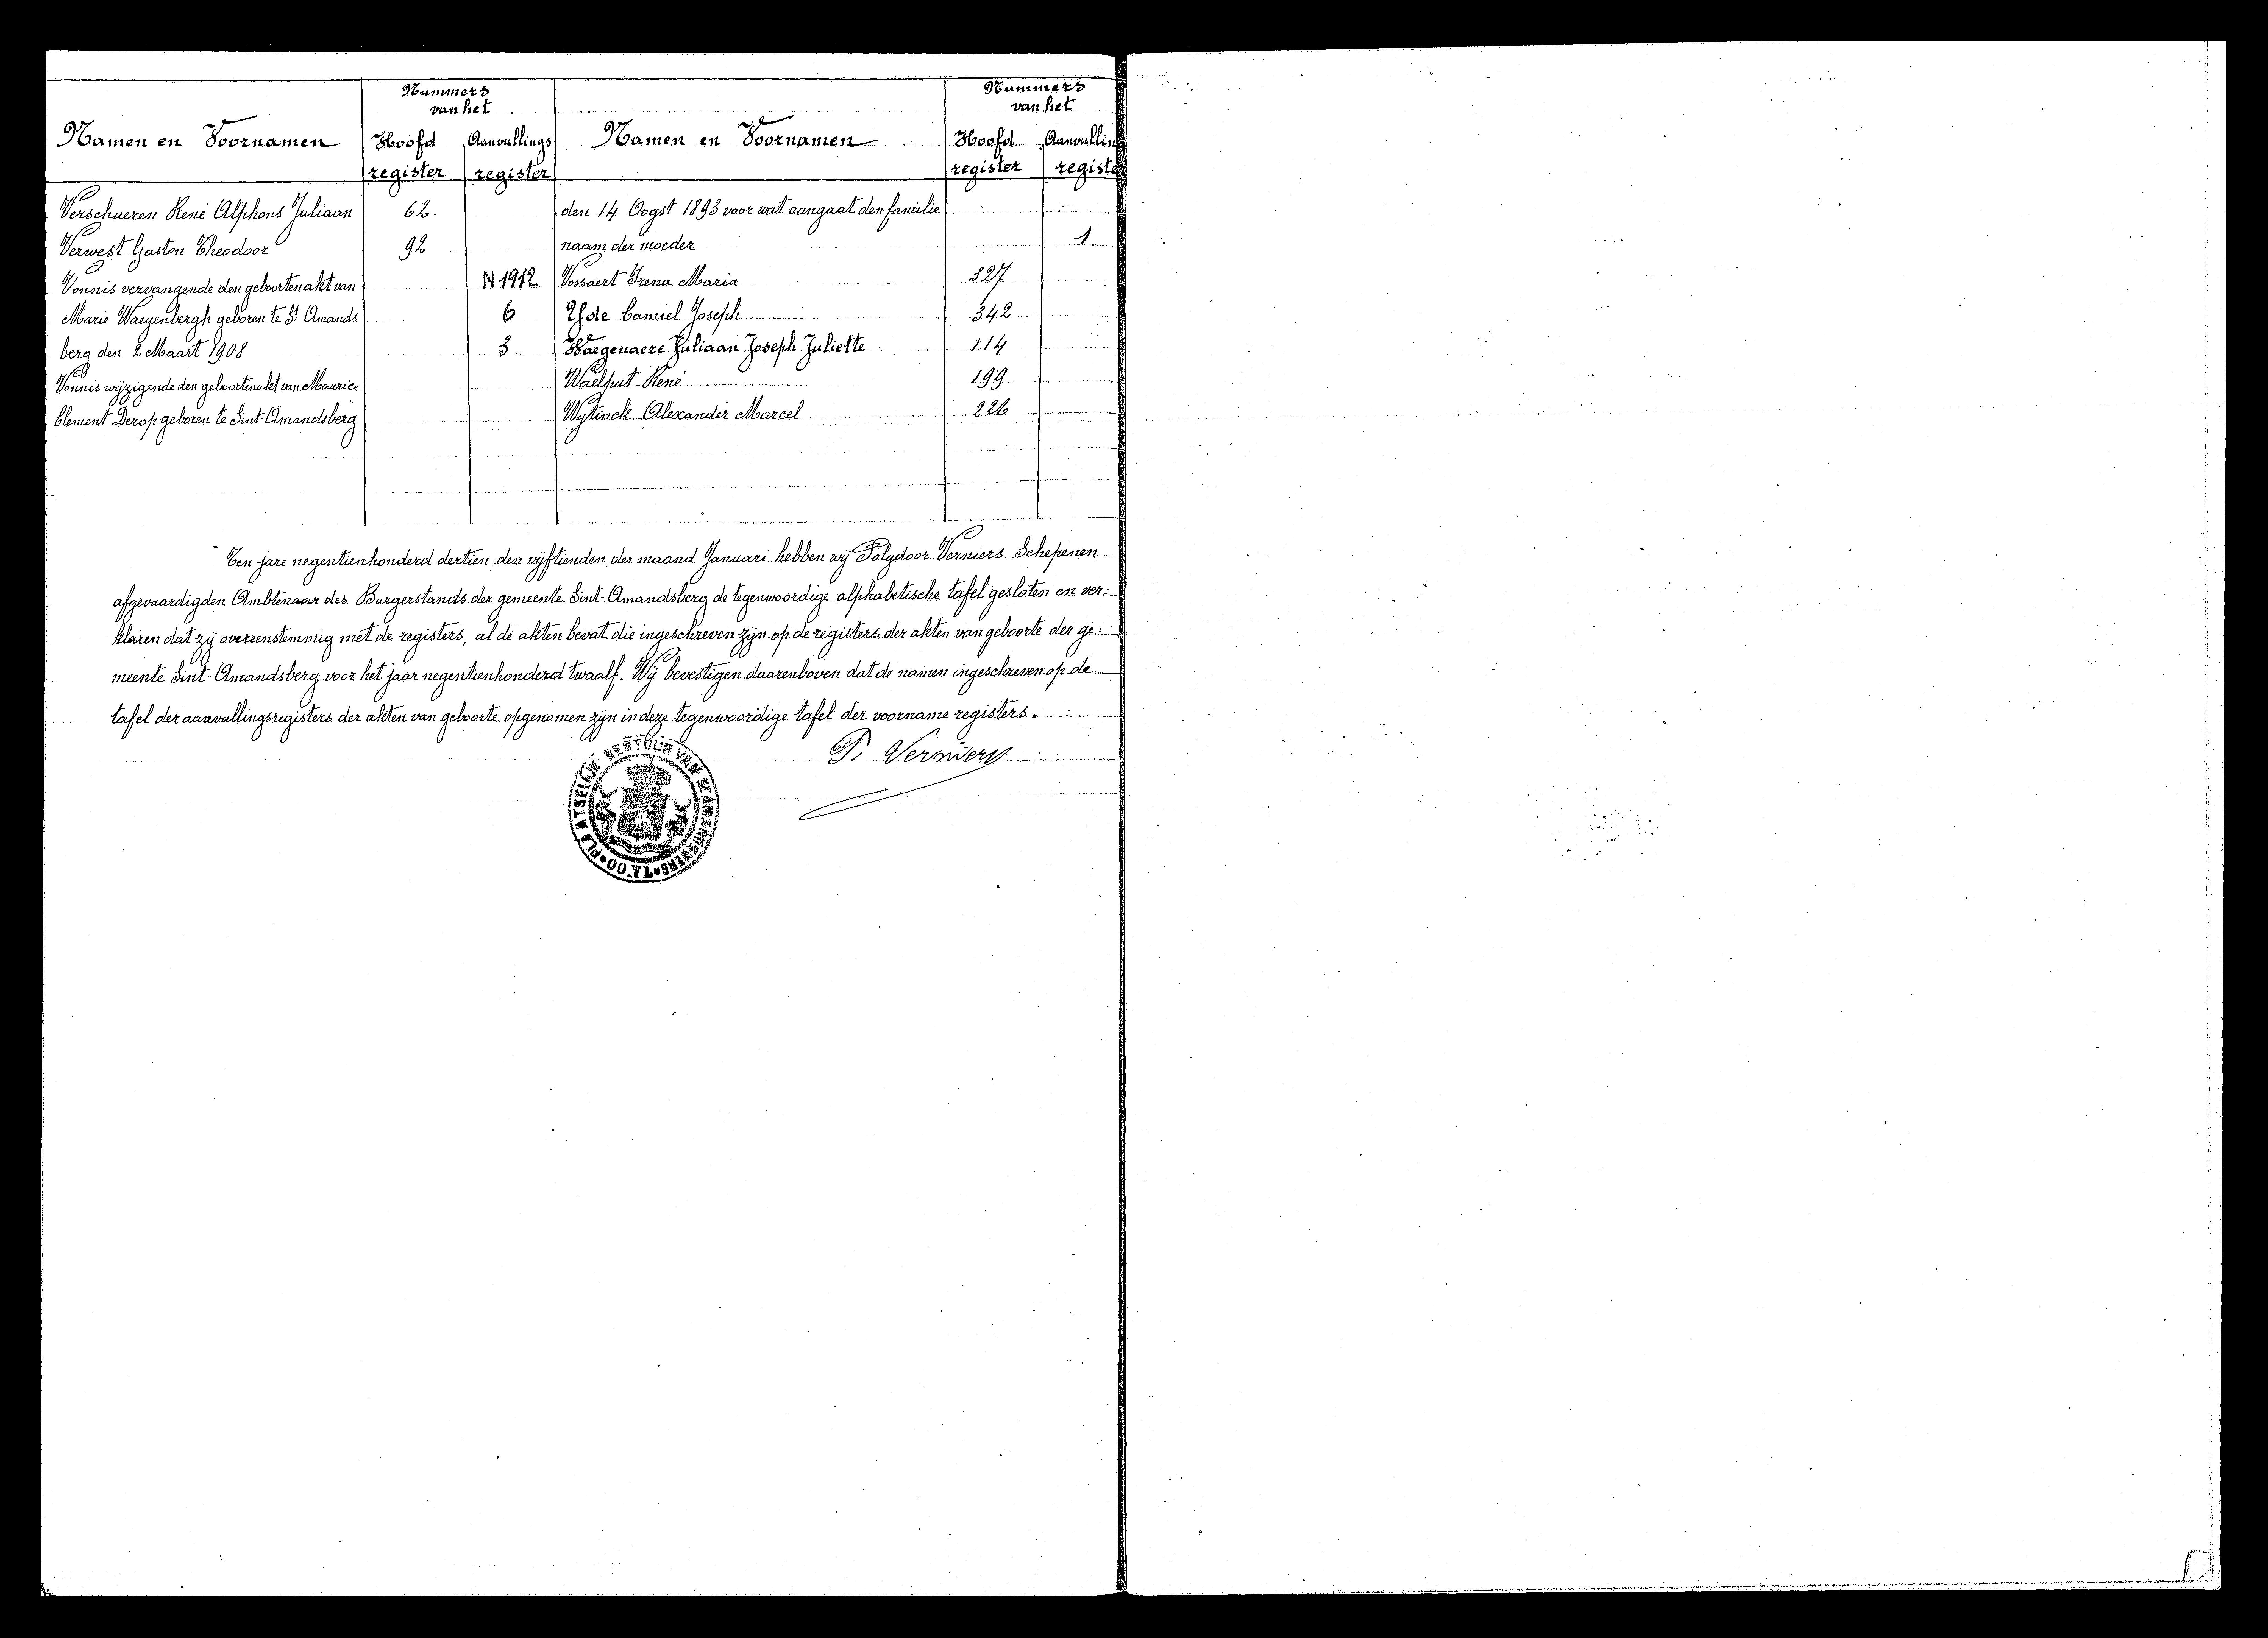 Nummers
van het
Namen en Voornamen Hoofd Aanvullings
register register
Verschueren René Alphons Juliaan 62.
Verwest Gaston Theodoor 92
Vonnis vervangende den geboortenakt van N 1912
Marie Waeyenbergh geboren te St Amands 6
berg den 2 Maart 1908 3
Vonnis wijzigende den geboortenakt van Maurice
Clement Derop geboren te Sint-Amandsberg
Nummers
van het
Namen en Voornamen Hoofd Aanvulling
register register
den 14 Oogst 1893 voor wat aangaat den familie
naam der moeder 1
Vossaert Irena Maria 327
Yde Camiel Joseph 342
Waegenaere Juliaan Joseph Juliette 114
Waelput René 199
Wytinck Alexander Marcel 226
Ten jare negentienhonderd dertien den vijftienden der maand Januari hebben wij Polydoor Verniers Schepenen
afgevaardigden Ambtenaar des Burgerstands der gemeente Sint-Amandsberg de tegenwoordige alphabetische tafel gesloten en ver=
klaren dat zij overeenstemmig met de registers, al de akten bevat die ingeschreven zijn op de registers der akten van geboorte der ge=
meente Sint-Amandsberg voor het jaar negentienhonderd twaalf. Wij bevestigen daarenboven dat de namen ingeschreven op de
tafel der aanvullingsregisters der akten van geboorte opgenomen zijn in deze tegenwoordige tafel der voorname registers.
P. Verniers
PLAATSELIJK BESTUUR VAN ST AMANDSBERG